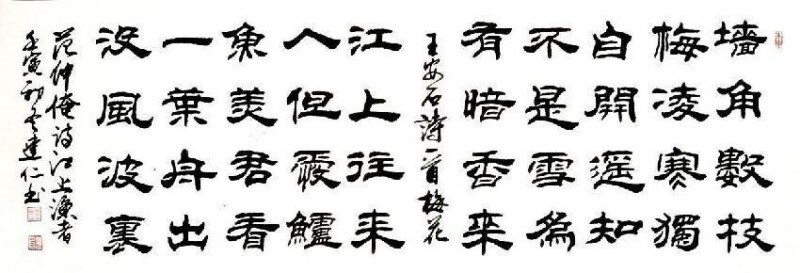 墻角數枝
梅凌寒獨
自開遥知
不是雪為
有暗香来
王安石詩一首梅花
江上往来
人但愛鱸
魚美君看
一葉舟出
没風波裏
范仲俺诗江上漁者
壬寅初建仁书